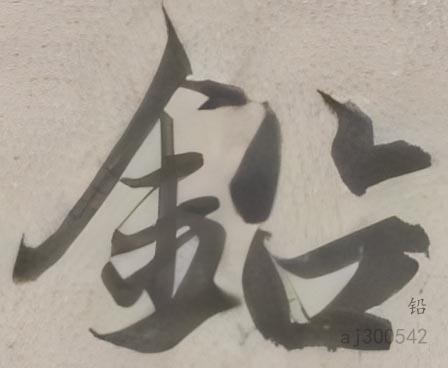 鉛
铅
aj300542